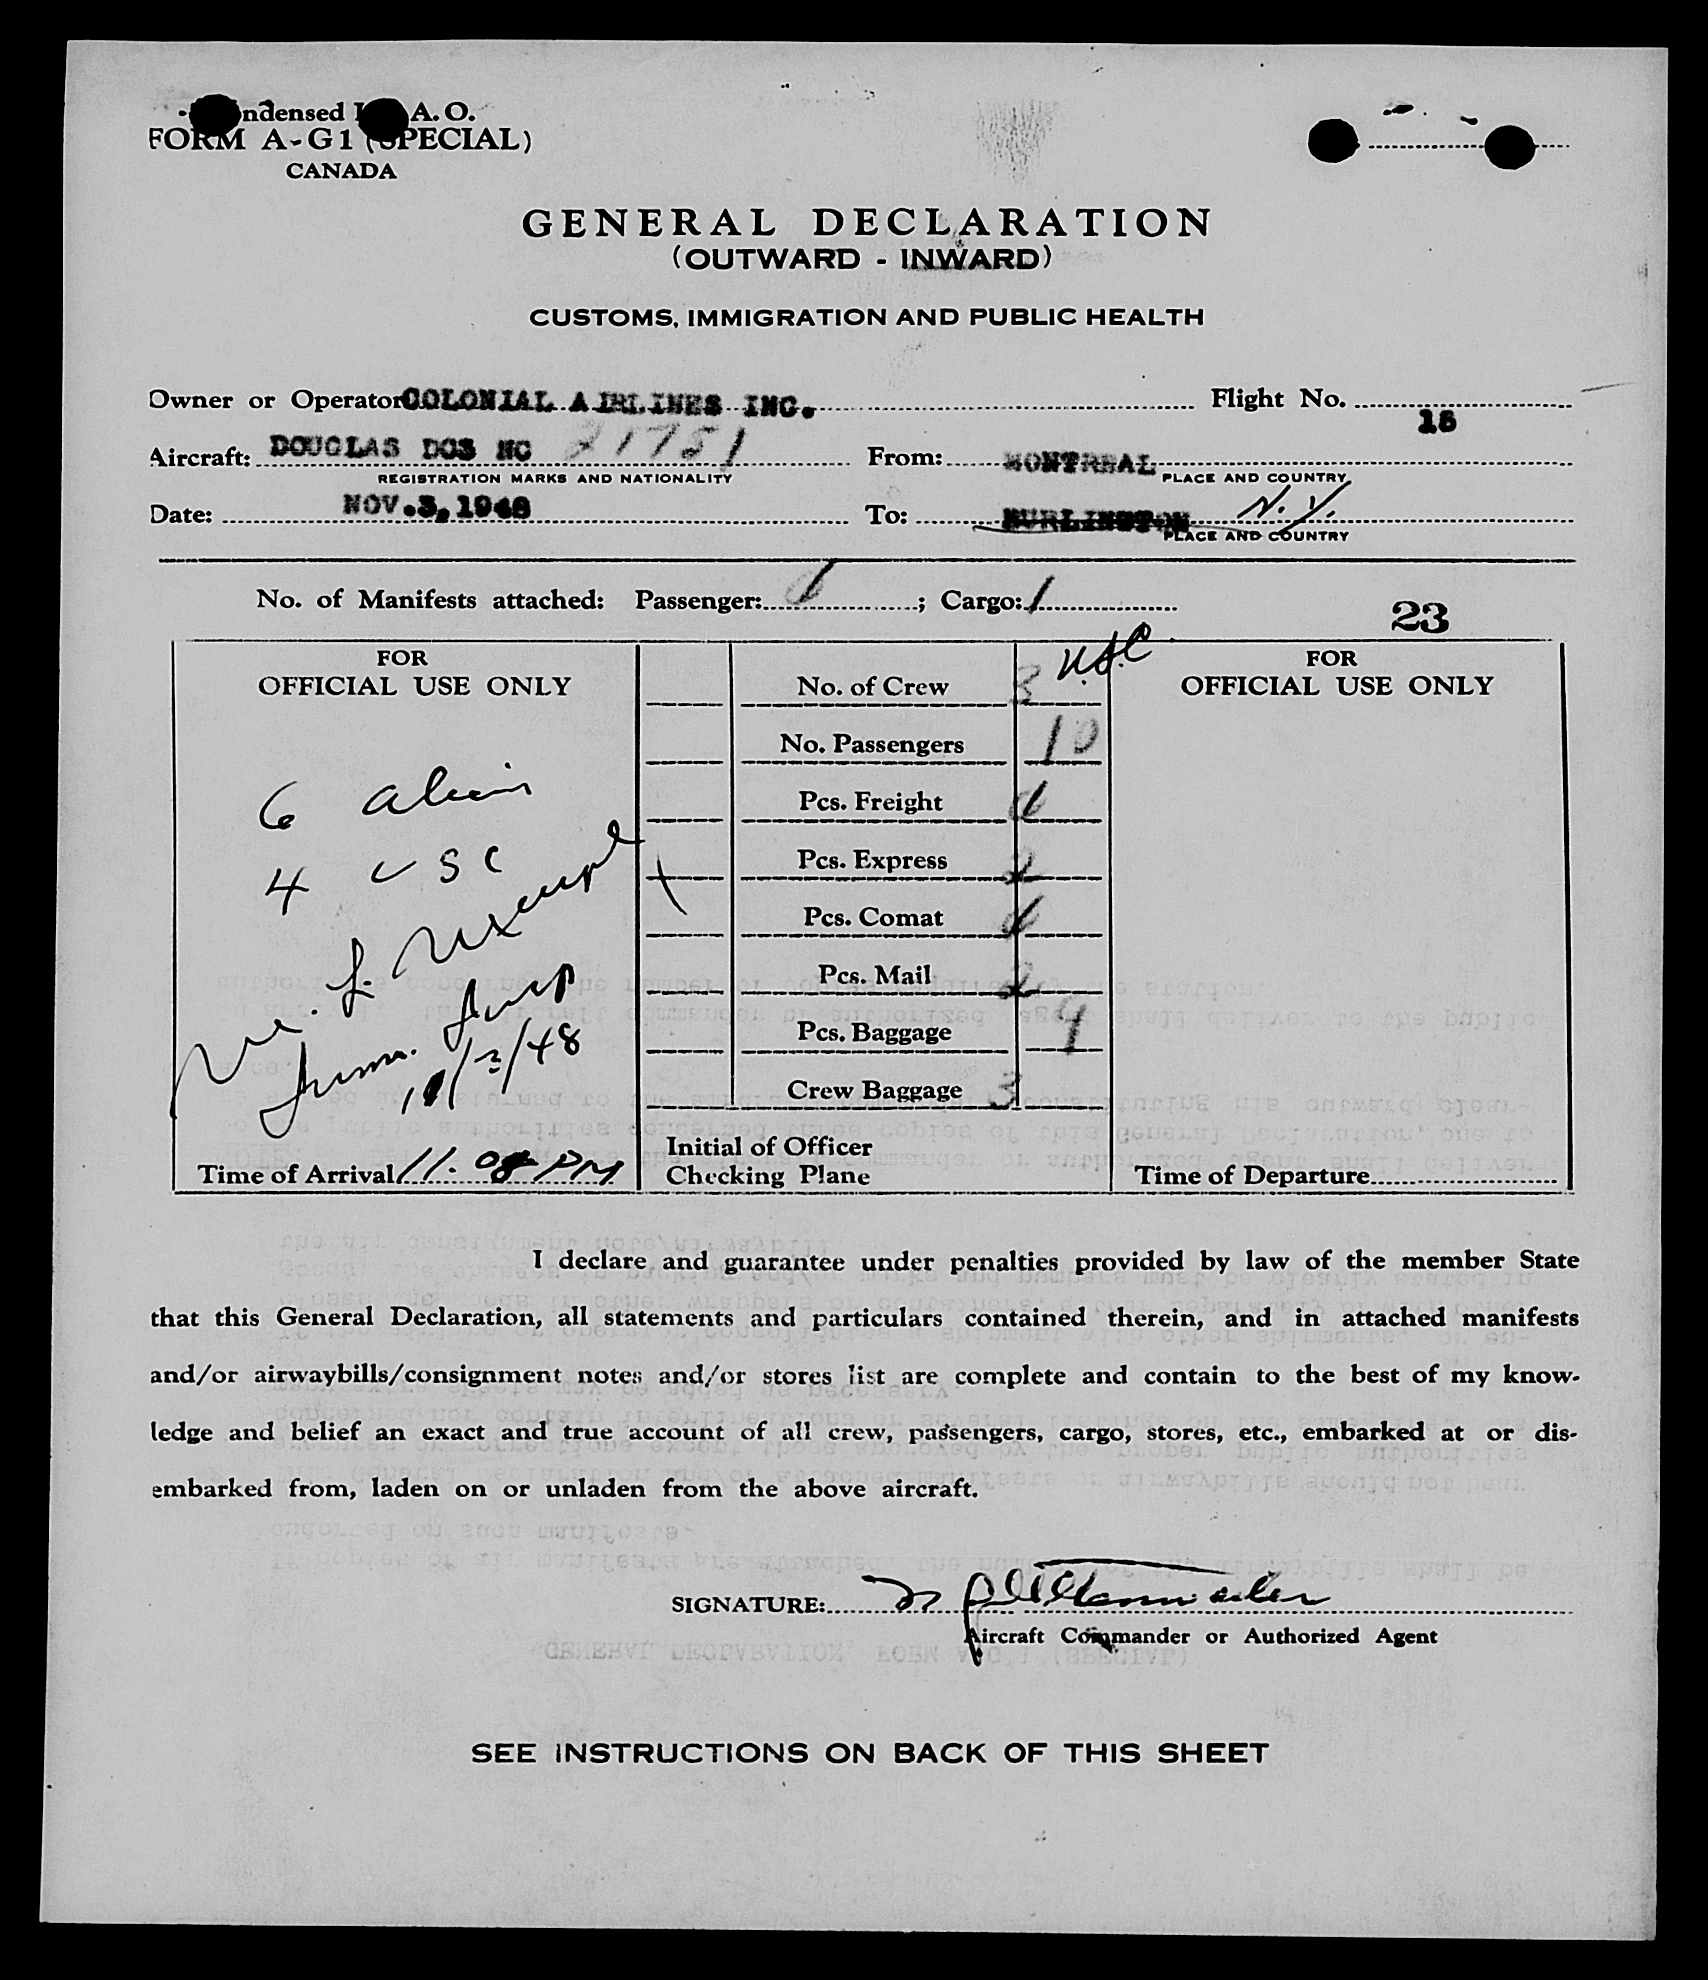 ndensed A. O.
FORM A-G1 (SPECIAL)
CANADA
GENERAL DECLARATION
(OUTWARD - INWARD)
CUSTOMS, IMMIGRATION AND PUBLIC HEALTH
Owner or Operator COLONIAL AIRLINES INC. Flight No.
Aircraft: DOUGLAS DC3 NC 21751 From: MONTREAL
REGISTRATION MARKS AND NATIONALITY PLACE AND COUNTRY
Date: NOV.3,1948 To: BURLINGTON N.Y.
PLACE AND COUNTRY
No. of Manifests attached: Passenger: ; Cargo: 1
23
FOR
OFFICIAL USE ONLY
6 alien
4 USC
Imm. Insp
11/3/48
Time of Arrival 11.08 PM
No. of Crew 3 U.S.C
No. Passengers 10
Pcs. Freight
Pcs. Express 2
Pcs. Comat
Pcs. Mail 2
Pcs. Baggage 9
Crew Baggage 3
Initial of Officer
Checking Plane
FOR
OFFICIAL USE ONLY
Time of Departure
I declare and guarantee under penalties provided by law of the member State
that this General Declaration, all statements and particulars contained therein, and in attached manifests
and/or airwaybills/consignment notes and/or stores list are complete and contain to the best of my know-
ledge and belief an exact and true account of all crew, passengers, cargo, stores, etc., embarked at or dis-
embarked from, laden on or unladen from the above aircraft.
SIGNATURE:
Aircraft Commander or Authorized Agent
SEE INSTRUCTIONS ON BACK OF THIS SHEET